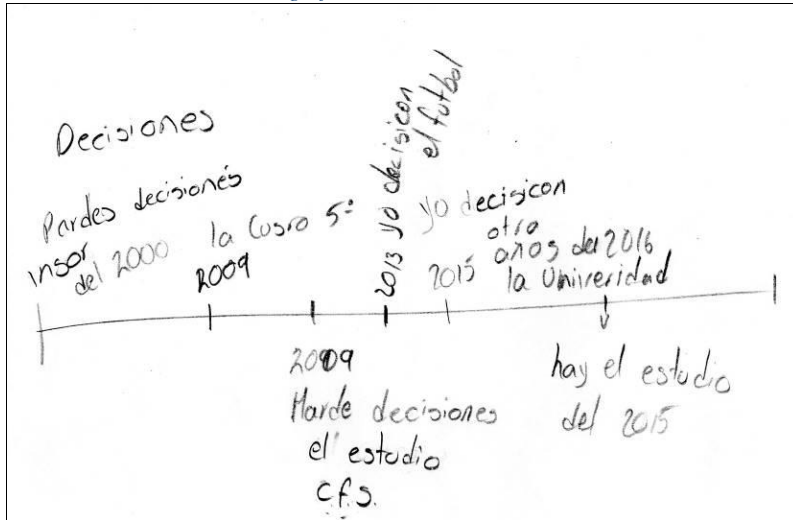 Decisiones
Pardes decisionés
insor
del 2000
la Cusro 5º
2009
2013 yo decisicon
el futbol
yo decisicon
otro
años del 2016
2015 la Univeridad
2009
Marde decisiones
el estudio
C.f.S.
hay el estudio
del 2015